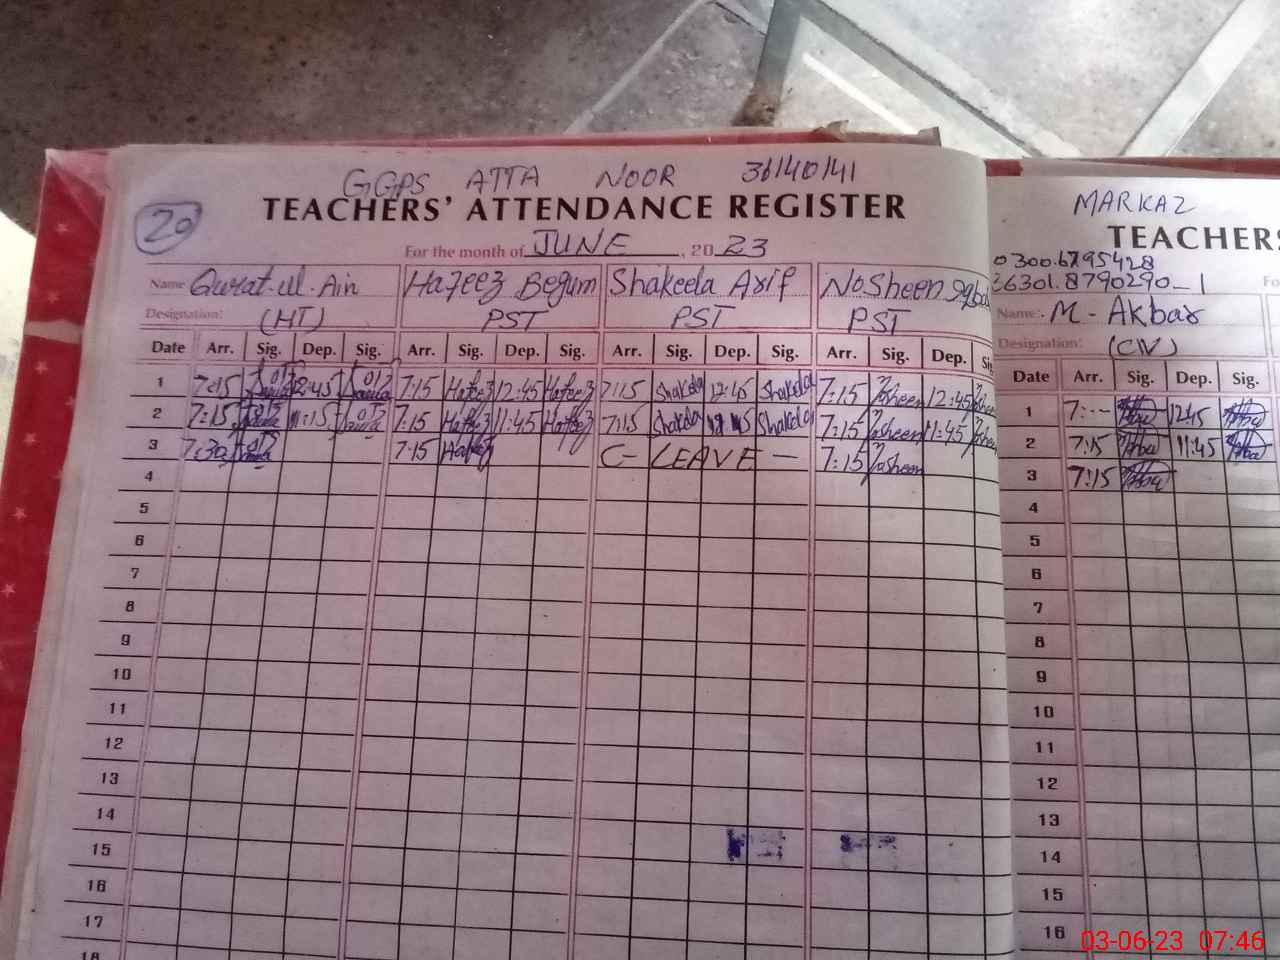 GGPS ATTA NOOR 36140141
20
TEACHERS' ATTENDANCE REGISTER
For the month of JUNE, 2023
Name Qurat-ul-Ain Hafeez Begum Shakeela Arif NoSheen Iqbal
Designation: (HT) PST PST PST
Date Arr. Sig. Dep. Sig. Arr. Sig. Dep. Sig. Arr. Sig. Dep. Sig. Arr. Sig. Dep. Sig
1 7:15 12:45 7:15 Hafeez 12:45 Hafeez 7:15 Shakela 12:45 Shakela 7:15 Nosheen 12:45
2 7:15 11:15 7:15 Hafeez 11:45 Hafeez 7:15 Shakela 11:45 Shakela 7:15 Nosheen 11:45
3 7:30 7:15 Hafeez C- LEAVE - 7:15 Nosheen
4
5
6
7
8
9
10
11
12
13
14
15
16
17
18
MARKAZ
TEACHERS
0300.6795428
36301.8790290_1 Fo
Name:- M - Akbar
Designation: (CIV)
Date Arr. Sig. Dep. Sig.
1 7:-- 12:45
2 7:15 11:45
3 7:15
4
5
6
7
8
9
10
11
12
13
14
15
16
03-06-23 07:46